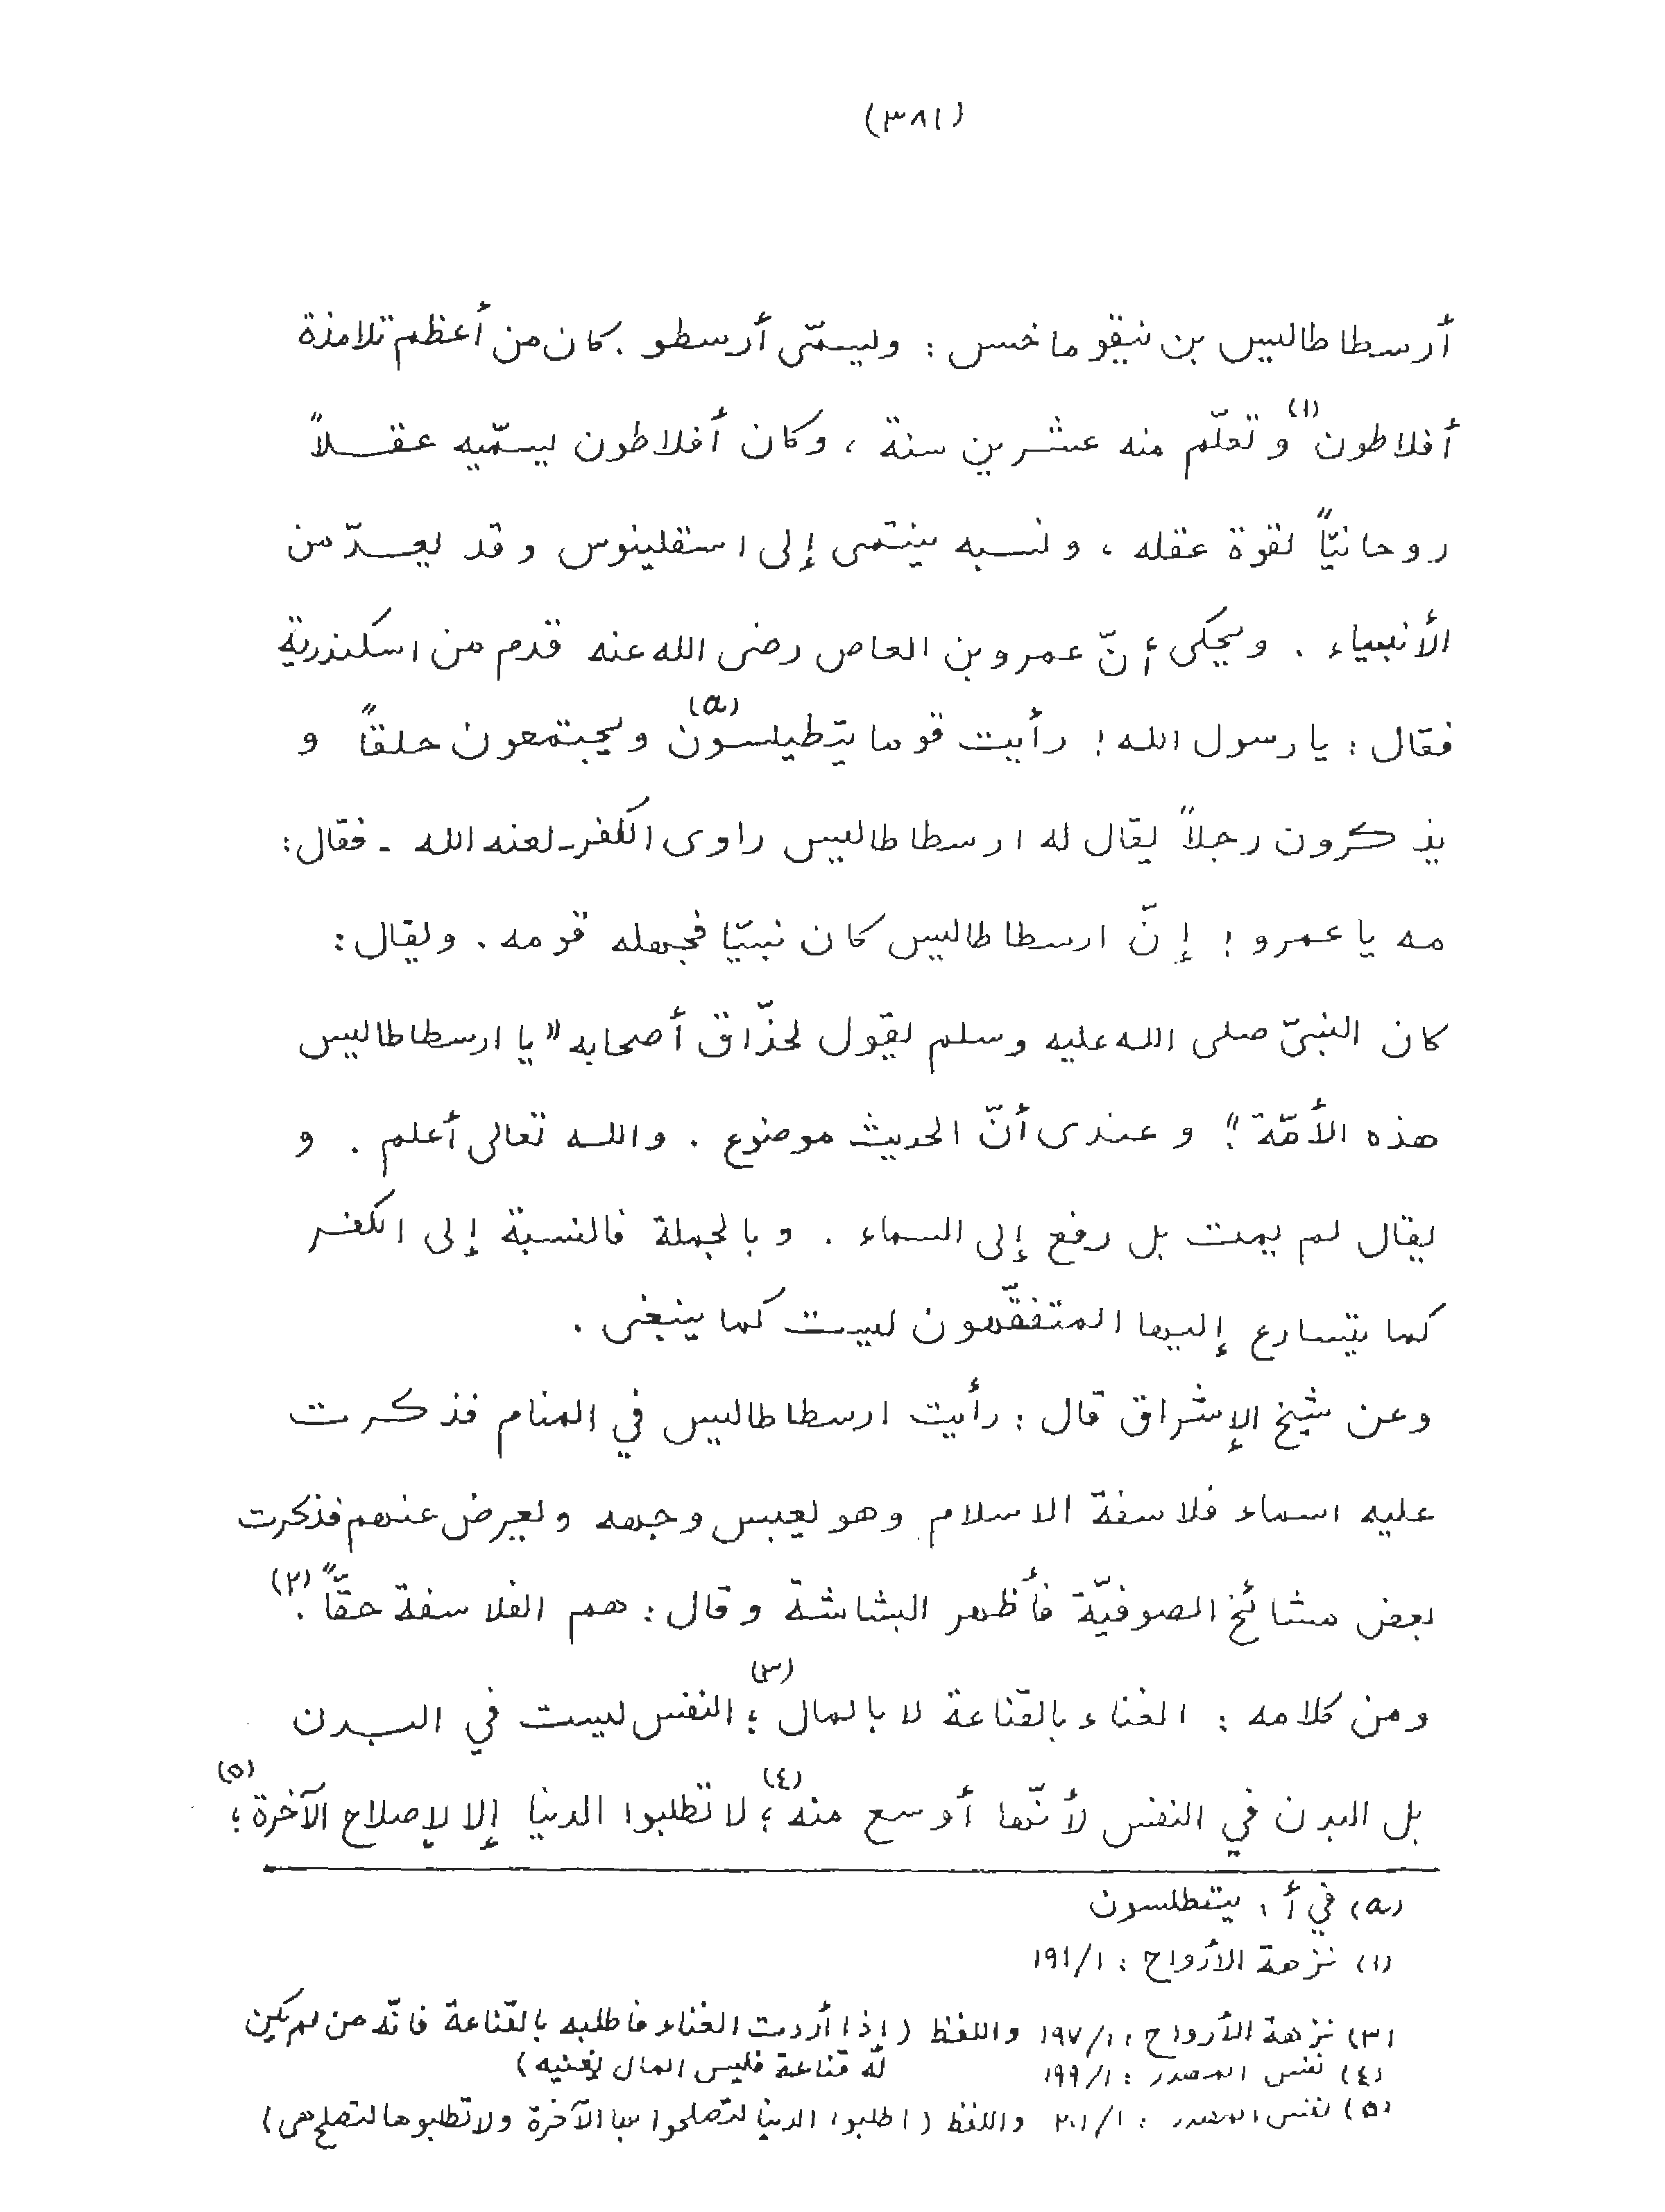 (٣٨١)
أرسطاطاليس بن نيقوماخس : وليسمّى أرسطو . كان من أعظم تلامذة
أفلاطون (١) و تعلّم منه عشرين سنة ، وكان أفلاطون يسمّيه عقلاً
روحانيّاً لقوة عقله ، ونسبه ينتمى إلى اسقلينوس وقد يعدّ من
الأنبياء . ويحكى أنّ عمرو بن العاص رضى الله عنه قدم من اسكندرية
فقال : يا رسول الله ! رأيت قوما يتطيلسون (a) ويجتمعون حلقاً و
يذكرون رجلاً يقال له ارسطاطاليس راوى الكفر - لعنه الله - فقال :
مه يا عمرو ! إنّ ارسطاطاليس كان نبيّا فجهله قومه . ويقال :
كان النبىّ صلى الله عليه وسلم يقول لحذّاق أصحابه " يا ارسطاطاليس
هذه الأمّة !" وعندى أنّ الحديث موضوع . والله تعالى أعلم . و
يقال لم يمت بل رفع إلى السماء . وبالجملة فالنسبة إلى الكفر
كما يتسارع إليها المتفقّهون ليست كما ينبغى .
وعن شيخ الإشراق قال : رأيت ارسطاطاليس في المنام فذكرت
عليه اسماء فلاسفة الاسلام وهو يعبس وجهه ويعرض عنهم فذكرت
بعض مشائخ الصوفيّة فأظهر البشاشة وقال : هم الفلاسفة حقّاً . (٢)
ومن كلامه : الغناء بالقناعة لا بالمال (٣) ؛ النفس ليست في البدن
بل البدن في النفس لأنّها أوسع منه (٤) ؛ لا تطلبوا الدنيا إلا لإصلاح الآخرة (٥) ؛
(a) في أ ، يتطلسون
(١) نزهة الأرواح : ١/١٩١
(٣) نزهة الأرواح : ١/١٩٧ واللفظ (إذا أردت الغناء فاطلبه بالقناعة فانّه من لم يكن
له قناعة فليس المال يغنيه)
(٤) نفس المصدر : ١/١٩٩
(٥) نفس المصدر : ١/٢٠١ واللفظ (اطلبوا الدنيا لتصلحوا بها الآخرة ولا تطلبوها لتصلح هى)